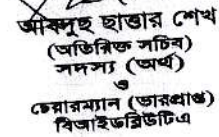 আবদুছ ছাত্তার শেখ
(অতিরিক্ত সচিব)
সদস্য (অর্থ)
ও
চেয়ারম্যান (ভারপ্রাপ্ত)
বিআইডব্লিউটিএ